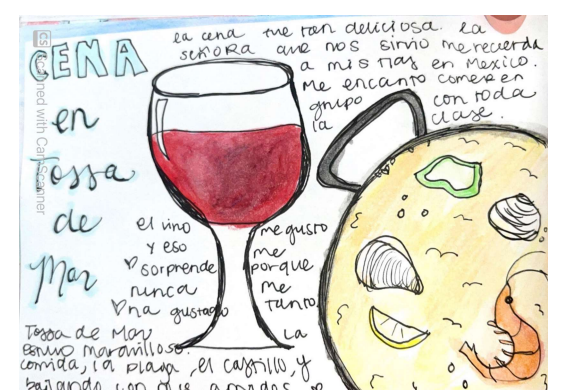 CENA
en
Tossa
de
Mar
la cena fue tan deliciosa. La
señora que nos sirvio me recuerda
a mis tias en Mexico.
Me encanto comer en
grupo con toda
la clase.
el vino me gusto
y eso me
sorprende porque
nunca me
ha gustado tanto
Tossa de Mar La
estuvo maravilloso.
comida, la playa, el castillo, y
bailando con
CS Scanned with CamScanner